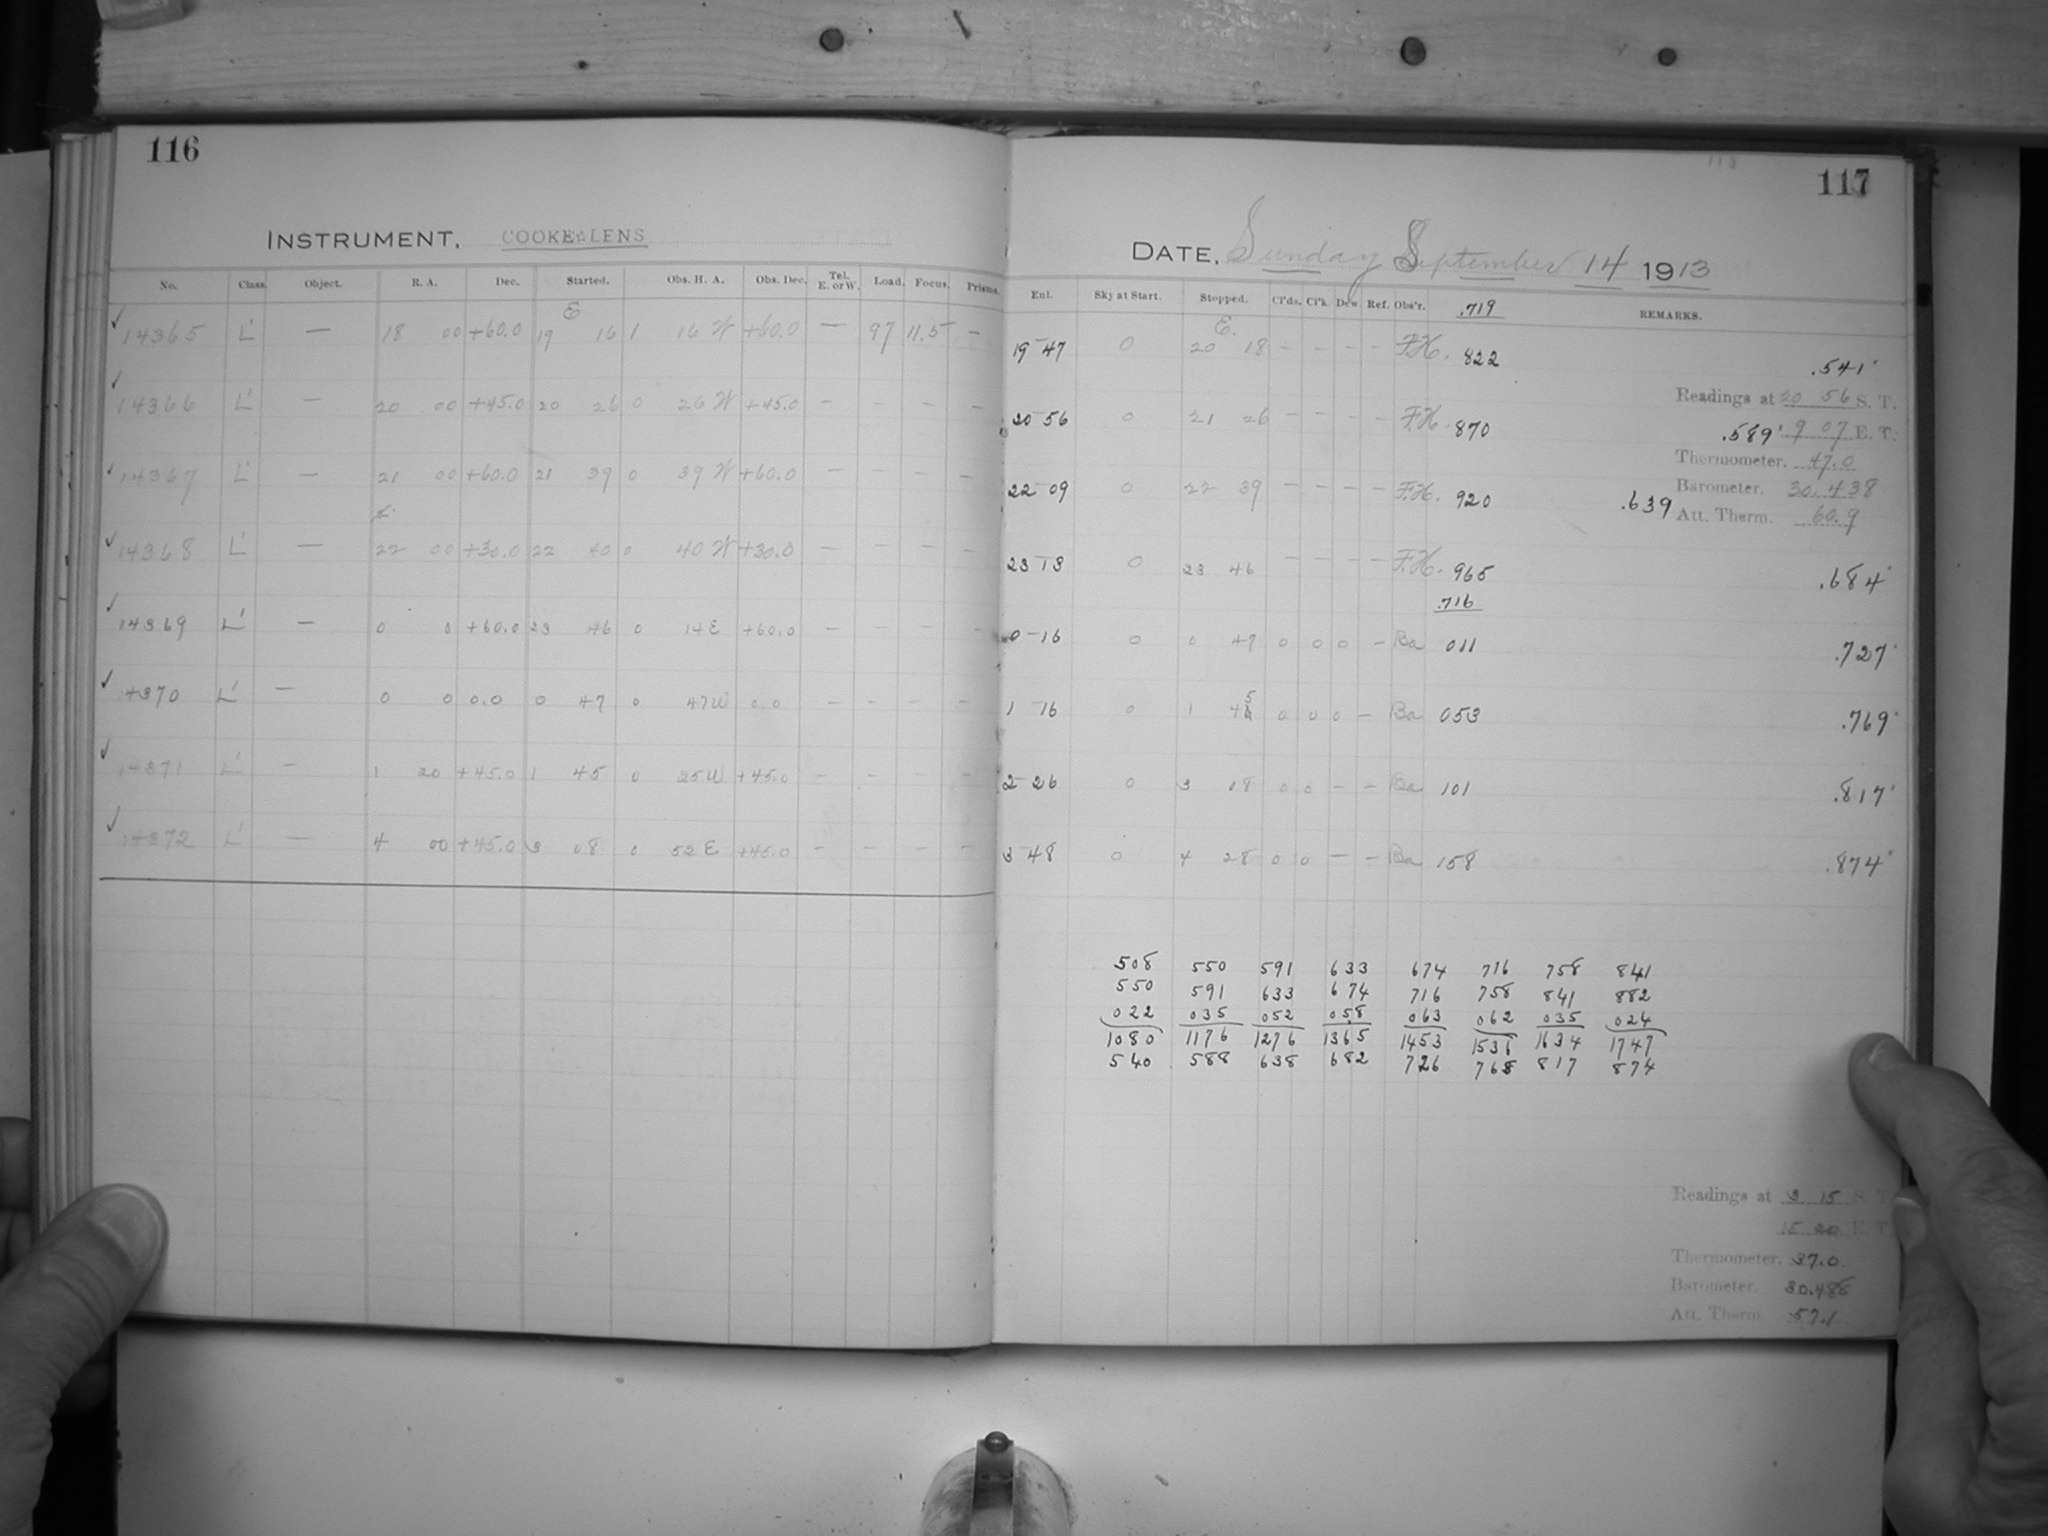 116
INSTRUMENT. COOKE LENS
No. Class. Object. R. A. Dec. Started. Obs. H. A. Obs. Dec. Tel. E. or W. Load. Focus. Prisms.
E
14365 L' — 18 00 +60.0 19 16 1 16 W +60.0 — 97 11.5 —
14366 L' — 20 00 +45.0 20 26 0 26 W +45.0 — — — —
14367 L' — 21 00 +60.0 21 39 0 39 W +60.0 — — — —
14368 L' — 22 00 +30.0 22 40 0 40 W +30.0 — — — —
14369 L' — 0 0 +60.0 23 46 0 14 E +60.0 — — — —
14370 L' — 0 0 0.0 0 47 0 47 W 0.0 — — — —
14371 L' — 1 20 +45.0 1 45 0 25 W +45.0 — — — —
14372 L' — 4 00 +45.0 3 08 0 52 E +45.0 — — — —
117
DATE. Sunday September 14 1913
Enl. Sky at Start. Stopped. Cl'ds. Cl'k. Dew. Ref. Obs'r. .719 REMARKS.
E.
19-47 0 20 18 — — — — F.H. 822 .541'
Readings at 20 56 S. T.
20 56 0 21 26 — — — — F.H. 870 .589' 9 07 E. T.
Thermometer. 47.0
Barometer. 30.438
22-09 0 22 39 — — — — F.H. 920 .639
Att. Therm. 60.9
23-13 0 23 46 — — — — F.H. 965 .684'
.716
0-16 0 0 47 0 0 0 — Ba 011 .727'
1-16 0 1 45 0 0 0 — Ba 053 .769'
2-26 0 3 08 0 0 — — Ba 101 .817'
3-48 0 4 28 0 0 — — Ba 158 .874'
508 550 591 633 674 716 758 841
550 591 633 674 716 758 841 882
022 035 052 058 063 062 035 024
1080 1176 1276 1365 1453 1536 1634 1747
540 588 638 682 726 768 817 874
Readings at 3 15 S. T.
15 20 E. T.
Thermometer. 37.0
Barometer. 30.488
Att. Therm. 57.1